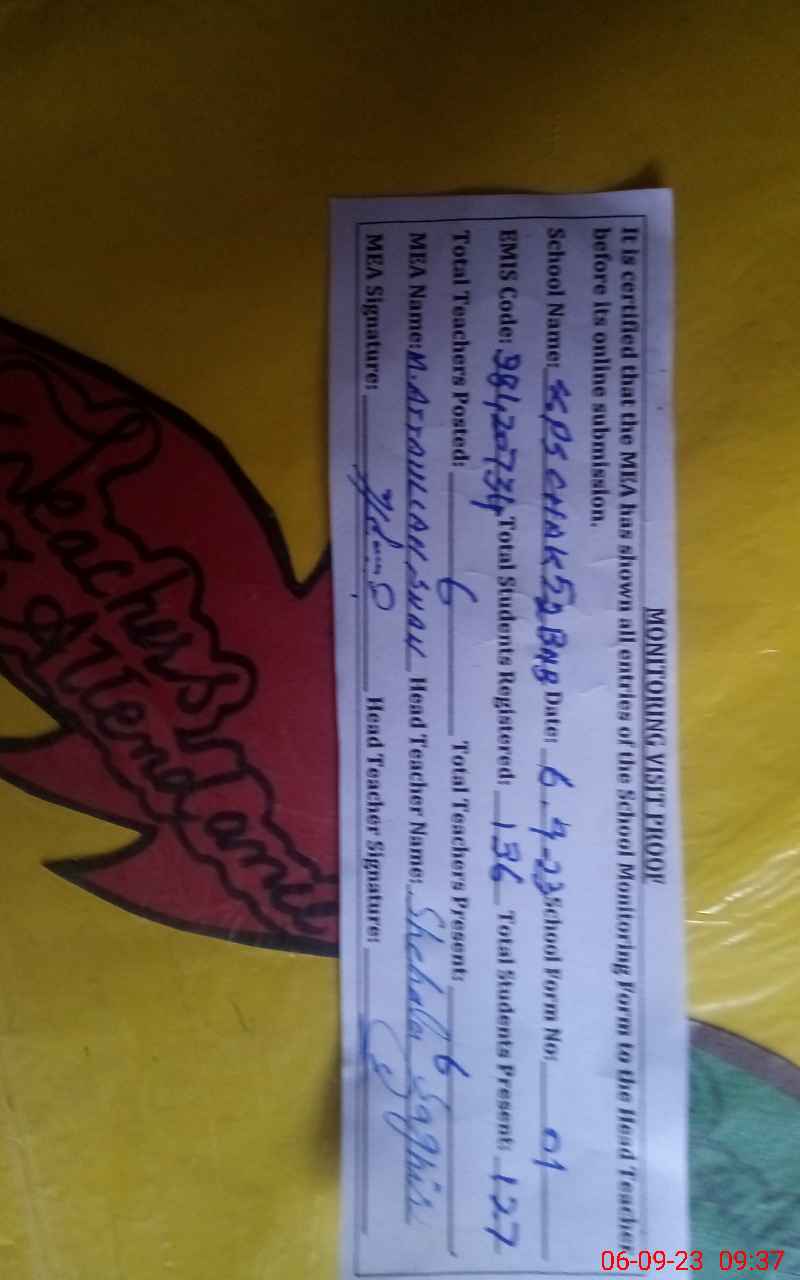 MONITORING VISIT PROOF
It is certified that the MEA has shown all entries of the School Monitoring Form to the Head Teacher
before its online submission.
School Name: GGPS CHAK 52 BNB Date: 6-9-23 School Form No: 01
EMIS Code: 38420734 Total Students Registered: 136 Total Students Present: 127
Total Teachers Posted: 6 Total Teachers Present: 6
MEA Name: M. ATTAULLAH SHAH Head Teacher Name: Shehala Saghir
MEA Signature: Head Teacher Signature:
Teachers
Attendance
06-09-23 09:37